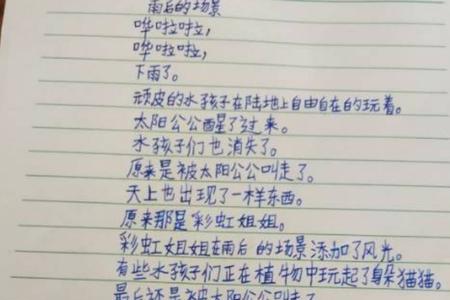 雨后的场景
哗啦啦，
哗啦啦，
下雨了。
顽皮的水孩子在陆地上自由自在的玩着。
太阳公公醒了过来。
水孩子们也消失了。
原来是被太阳公公叫走了。
天上也出现了一样东西。
原来那是彩虹姐姐。
彩虹姐姐在雨后的场景添加了风光。
有些水孩子们正在植物中玩起了躲猫猫。
最后还是被太阳公公叫走了